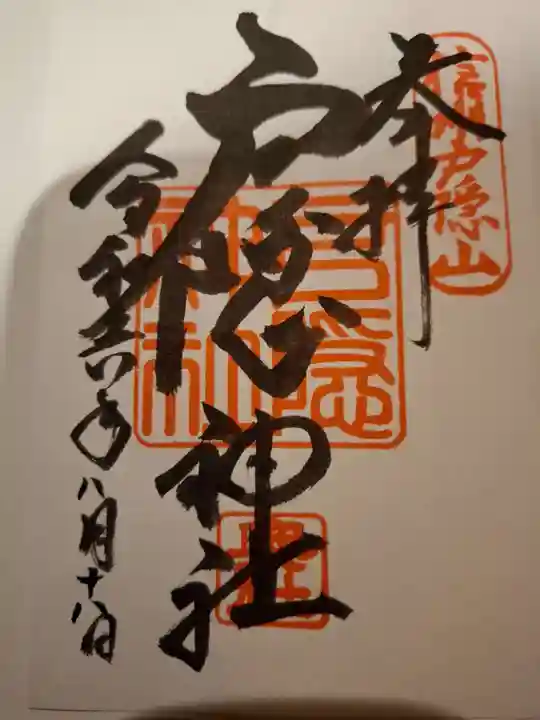 信州戸隠山
奉拝
戸隠神社
令和六年八月十八日
戸隠神社